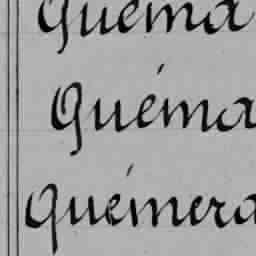 Quema
Quéma
quémera